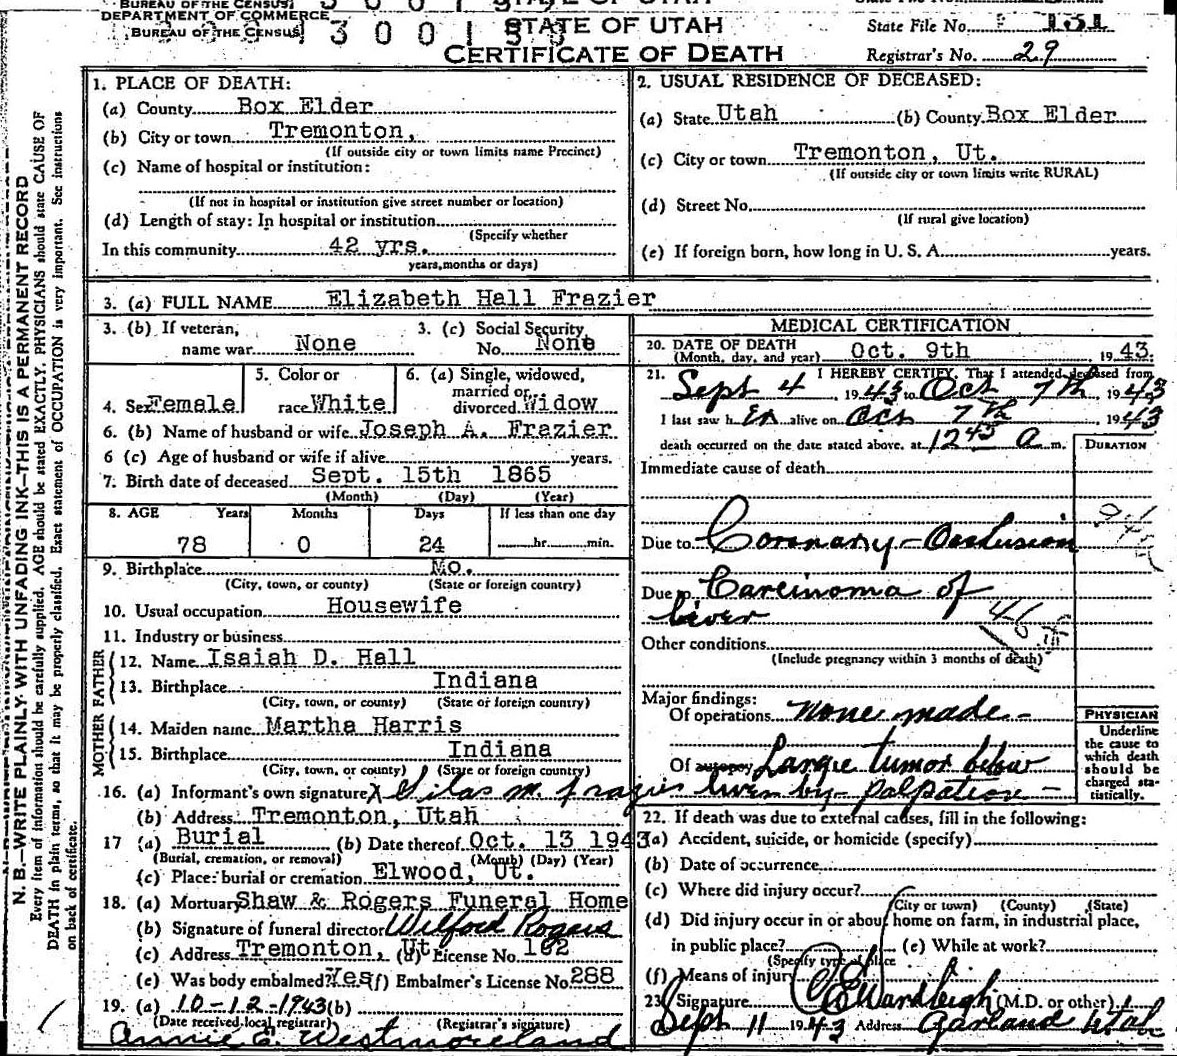 BUREAU OF THE CENSUS
DEPARTMENT OF COMMERCE
BUREAU OF THE CENSUS
STATE OF UTAH
CERTIFICATE OF DEATH
State File No. 131
Registrar's No. 29
N. B.—WRITE PLAINLY WITH UNFADING INK—THIS IS A PERMANENT RECORD
Every item of information should be carefully supplied. AGE should be stated EXACTLY. PHYSICIANS should state CAUSE OF
DEATH in plain terms, so that it may be properly classified. Exact statement of OCCUPATION is very important. See instructions
on back of certificate.
1. PLACE OF DEATH:
(a) County Box Elder
(b) City or town Tremonton,
(If outside city or town limits name Precinct)
(c) Name of hospital or institution:
(If not in hospital or institution give street number or location)
(d) Length of stay: In hospital or institution
(Specify whether
In this community 42 yrs.
years, months or days)
2. USUAL RESIDENCE OF DECEASED:
(a) State Utah (b) County Box Elder
(c) City or town Tremonton, Ut.
(If outside city or town limits write RURAL)
(d) Street No.
(If rural give location)
(e) If foreign born, how long in U. S. A. years.
3. (a) FULL NAME Elizabeth Hall Frazier
3. (b) If veteran, name war None
3. (c) Social Security No. None
4. Sex Female
5. Color or race White
6. (a) Single, widowed, married or divorced Widow
6. (b) Name of husband or wife Joseph A. Frazier
6 (c) Age of husband or wife if alive years.
7. Birth date of deceased Sept. 15th 1865
(Month) (Day) (Year)
8. AGE Years Months Days If less than one day
78 0 24 hr. min.
9. Birthplace Mo.
(City, town, or county) (State or foreign country)
10. Usual occupation Housewife
11. Industry or business
FATHER
12. Name Isaiah D. Hall
13. Birthplace Indiana
(City, town, or county) (State or foreign country)
MOTHER
14. Maiden name Martha Harris
15. Birthplace Indiana
(City, town, or county) (State or foreign country)
16. (a) Informant's own signature X Silas M. Frazier
(b) Address Tremonton, Utah
17 (a) Burial (b) Date thereof Oct. 13 1943
(Burial, cremation, or removal) (Month) (Day) (Year)
(c) Place: burial or cremation Elwood, Ut.
18. (a) Mortuary Shaw & Rogers Funeral Home
(b) Signature of funeral director Wilford Rogers
(c) Address Tremonton, Ut. (d) License No. 162
(e) Was body embalmed? Yes (f) Embalmer's License No. 288
19. (a) 10-12-1943 (b)
(Date received local registrar) (Registrar's signature)
Annie E. Westmoreland
MEDICAL CERTIFICATION
20. DATE OF DEATH
(Month, day, and year) Oct. 9th, 1943.
21. I HEREBY CERTIFY, That I attended deceased from
Sept 4, 1943 to Oct 7th, 1943
I last saw h er alive on Oct 7th 1943
death occurred on the date stated above, at 12 45 a m.
DURATION
Immediate cause of death
Due to Coronary-Occlusion
Due to Carcinoma of
liver
Other conditions
(Include pregnancy within 3 months of death)
Major findings:
Of operations none made-
Of autopsy Large tumor below
liver by palpation-
PHYSICIAN
Underline
the cause to
which death
should be
charged sta-
tistically.
22. If death was due to external causes, fill in the following:
(a) Accident, suicide, or homicide (specify)
(b) Date of occurrence
(c) Where did injury occur?
(City or town) (County) (State)
(d) Did injury occur in or about home on farm, in industrial place,
in public place? (e) While at work?
(Specify type of place
(f) Means of injury
23. Signature (M.D. or other)
Sept 11 1943 Address Garland Utah